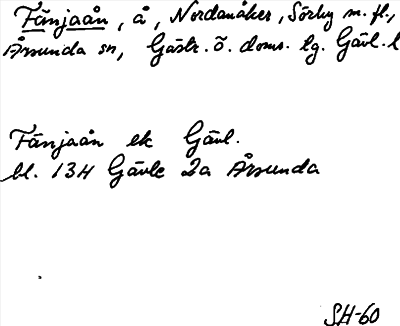 Fänjaån, å, Nordanåker, Sörby m. fl.,
Årsunda sn, Gästr. ö. doms. lg. Gävl. l
Fänjaån ek Gävl.
bl. 13H Gävle 2a Årsunda
SH-60